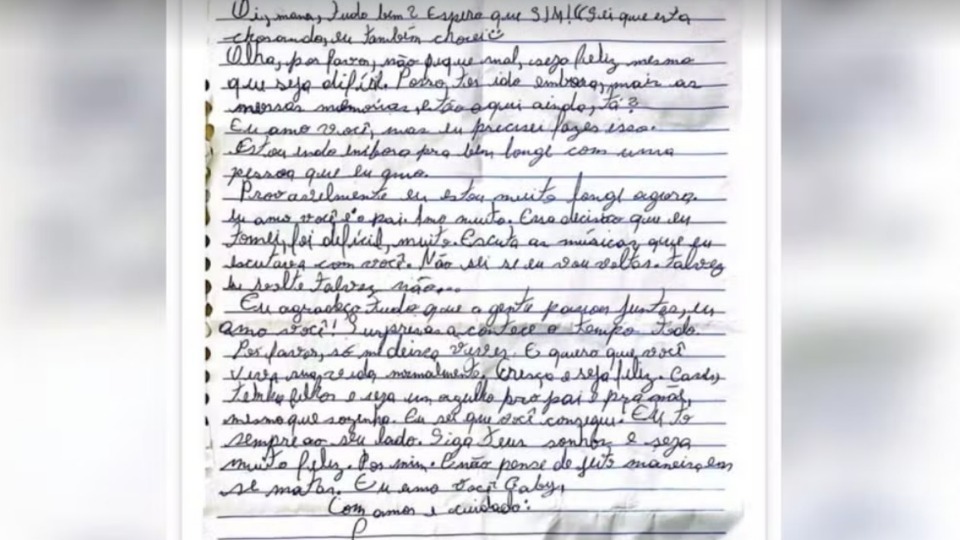 Oi, mana, tudo bem? Espero que SIM! (Sei que esta
chorando, eu também chorei
Olha, por favor, não fique mal, seja feliz mesmo
que seja difícil. Posso ter ido embora, mais as
nossas memórias, estão aqui ainda, tá?
Eu amo você, mas eu precisei fazer isso.
Estou indo embora pra bem longe com uma
pessoa que eu amo.
Provavelmente eu estou muito longe agora.
Eu amo você e o pai. Amo muito. Essa decisão que eu
tomei, foi difícil, muito. Escuta as músicas que eu
escutava com você. Não sei se eu vou voltar. talvez
eu volte talvez não...
Eu agradeço tudo que a gente passou juntas, eu
amo você! Surpresas a contece o tempo todo
Por favor, só me deixa viver. E quero que você
viva sua vida normalmente. Cresça e seja feliz. Case,
tenha filhos e seja um orgulho pro pai e pra mãe,
mesmo que sozinha. Eu sei que você consegue. Eu to
sempre ao seu lado. Siga teus sonhos e seja
muito feliz. Por mim. E não pense de jeito maneira em
se matar. Eu amo você Gaby,
Com amor e cuidado: